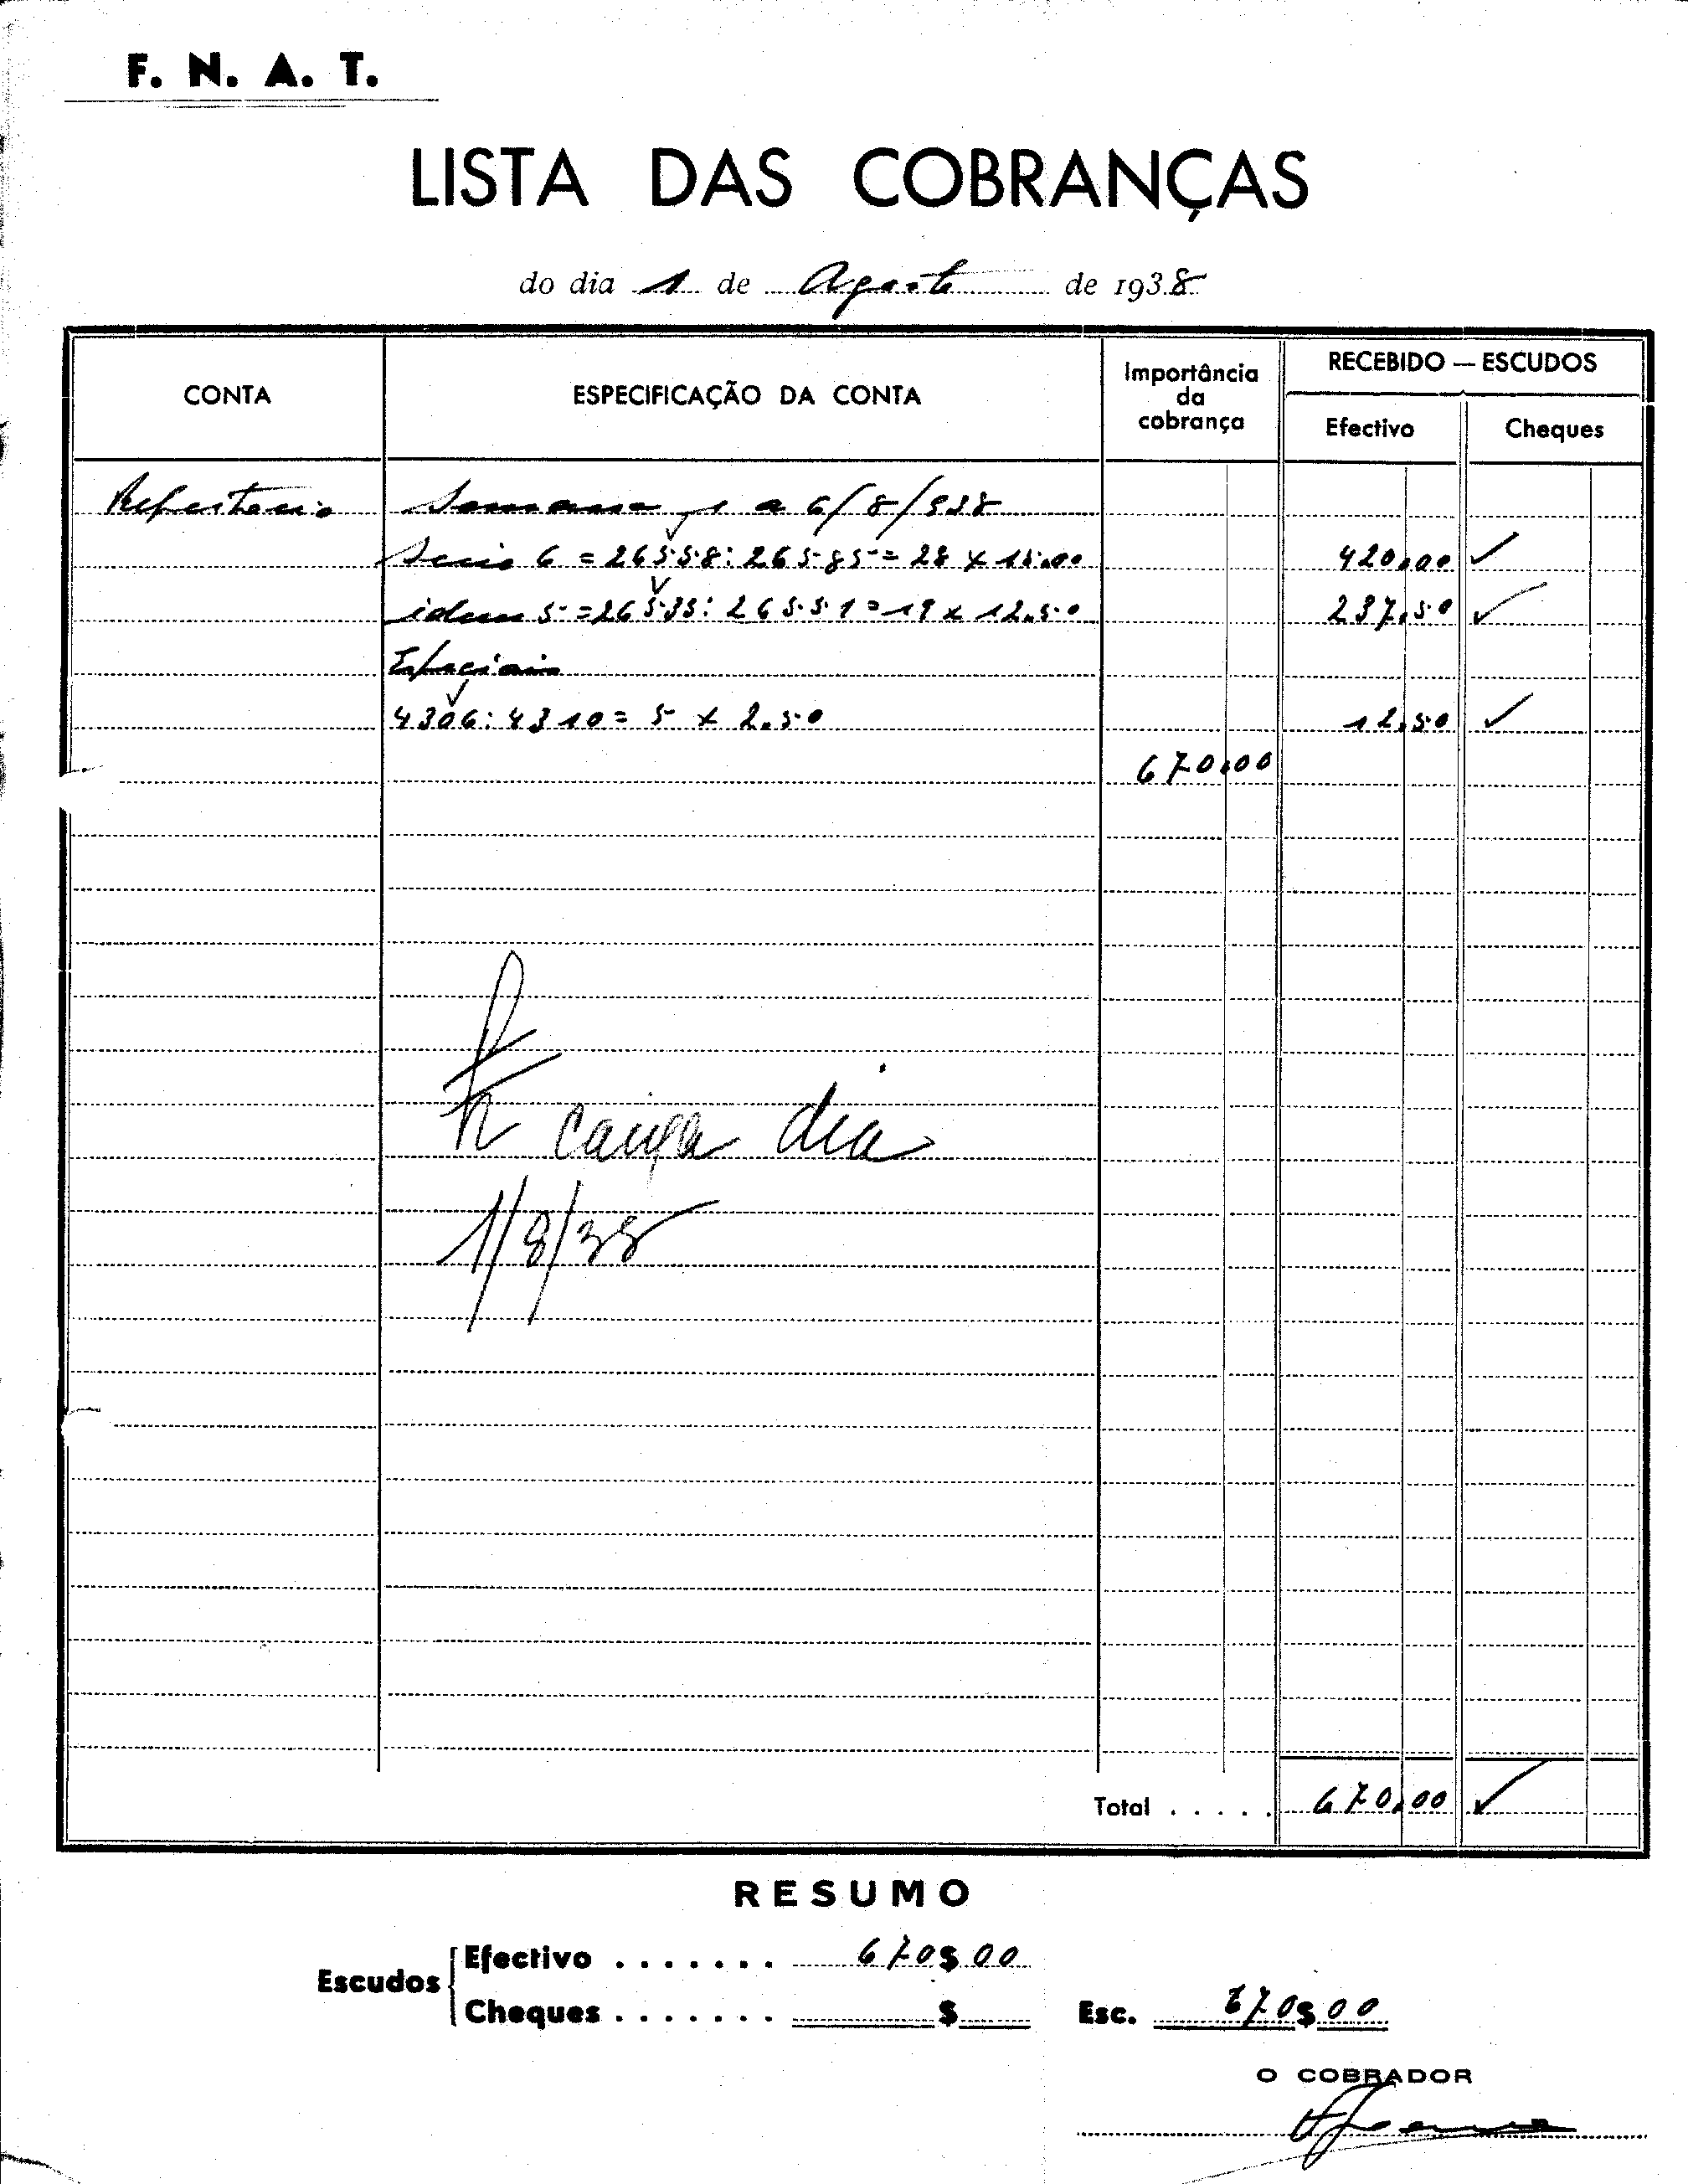 F. N. A. T.
LISTA DAS COBRANÇAS
do dia 1 de Agosto de 1938
CONTA ESPECIFICAÇÃO DA CONTA Importância da cobrança RECEBIDO — ESCUDOS
Efectivo Cheques
Refeitorio Semana 1 a 6/8/938
Seris 6 = 26558: 26585 = 28 x 15.00 420,00
idem 5 = 26533: 26551 = 19 x 12.50 237,50
Especiais
4306: 4310 = 5 x 2.50 12,50
670,00
caixa dia
1/8/38
Total . . . . . 670,00
RESUMO
Escudos
Efectivo . . . . . . . 670$00
Cheques . . . . . . . $ Esc. 670$00
O COBRADOR